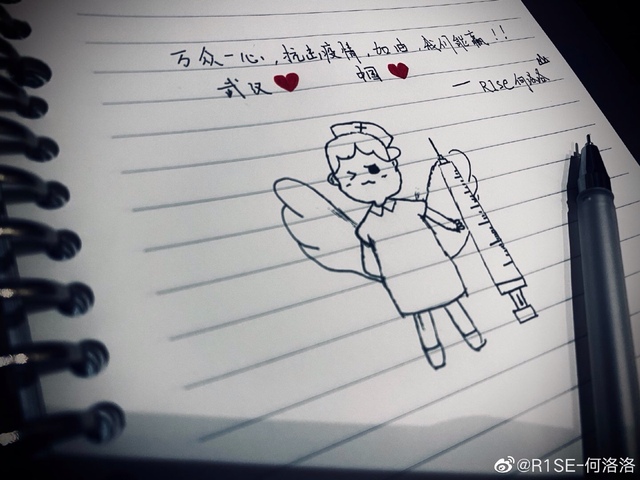 万众一心，抗击疫情，加油，我们能赢！！
武汉❤ 中国❤
— R1SE 何洛洛
@R1SE-何洛洛